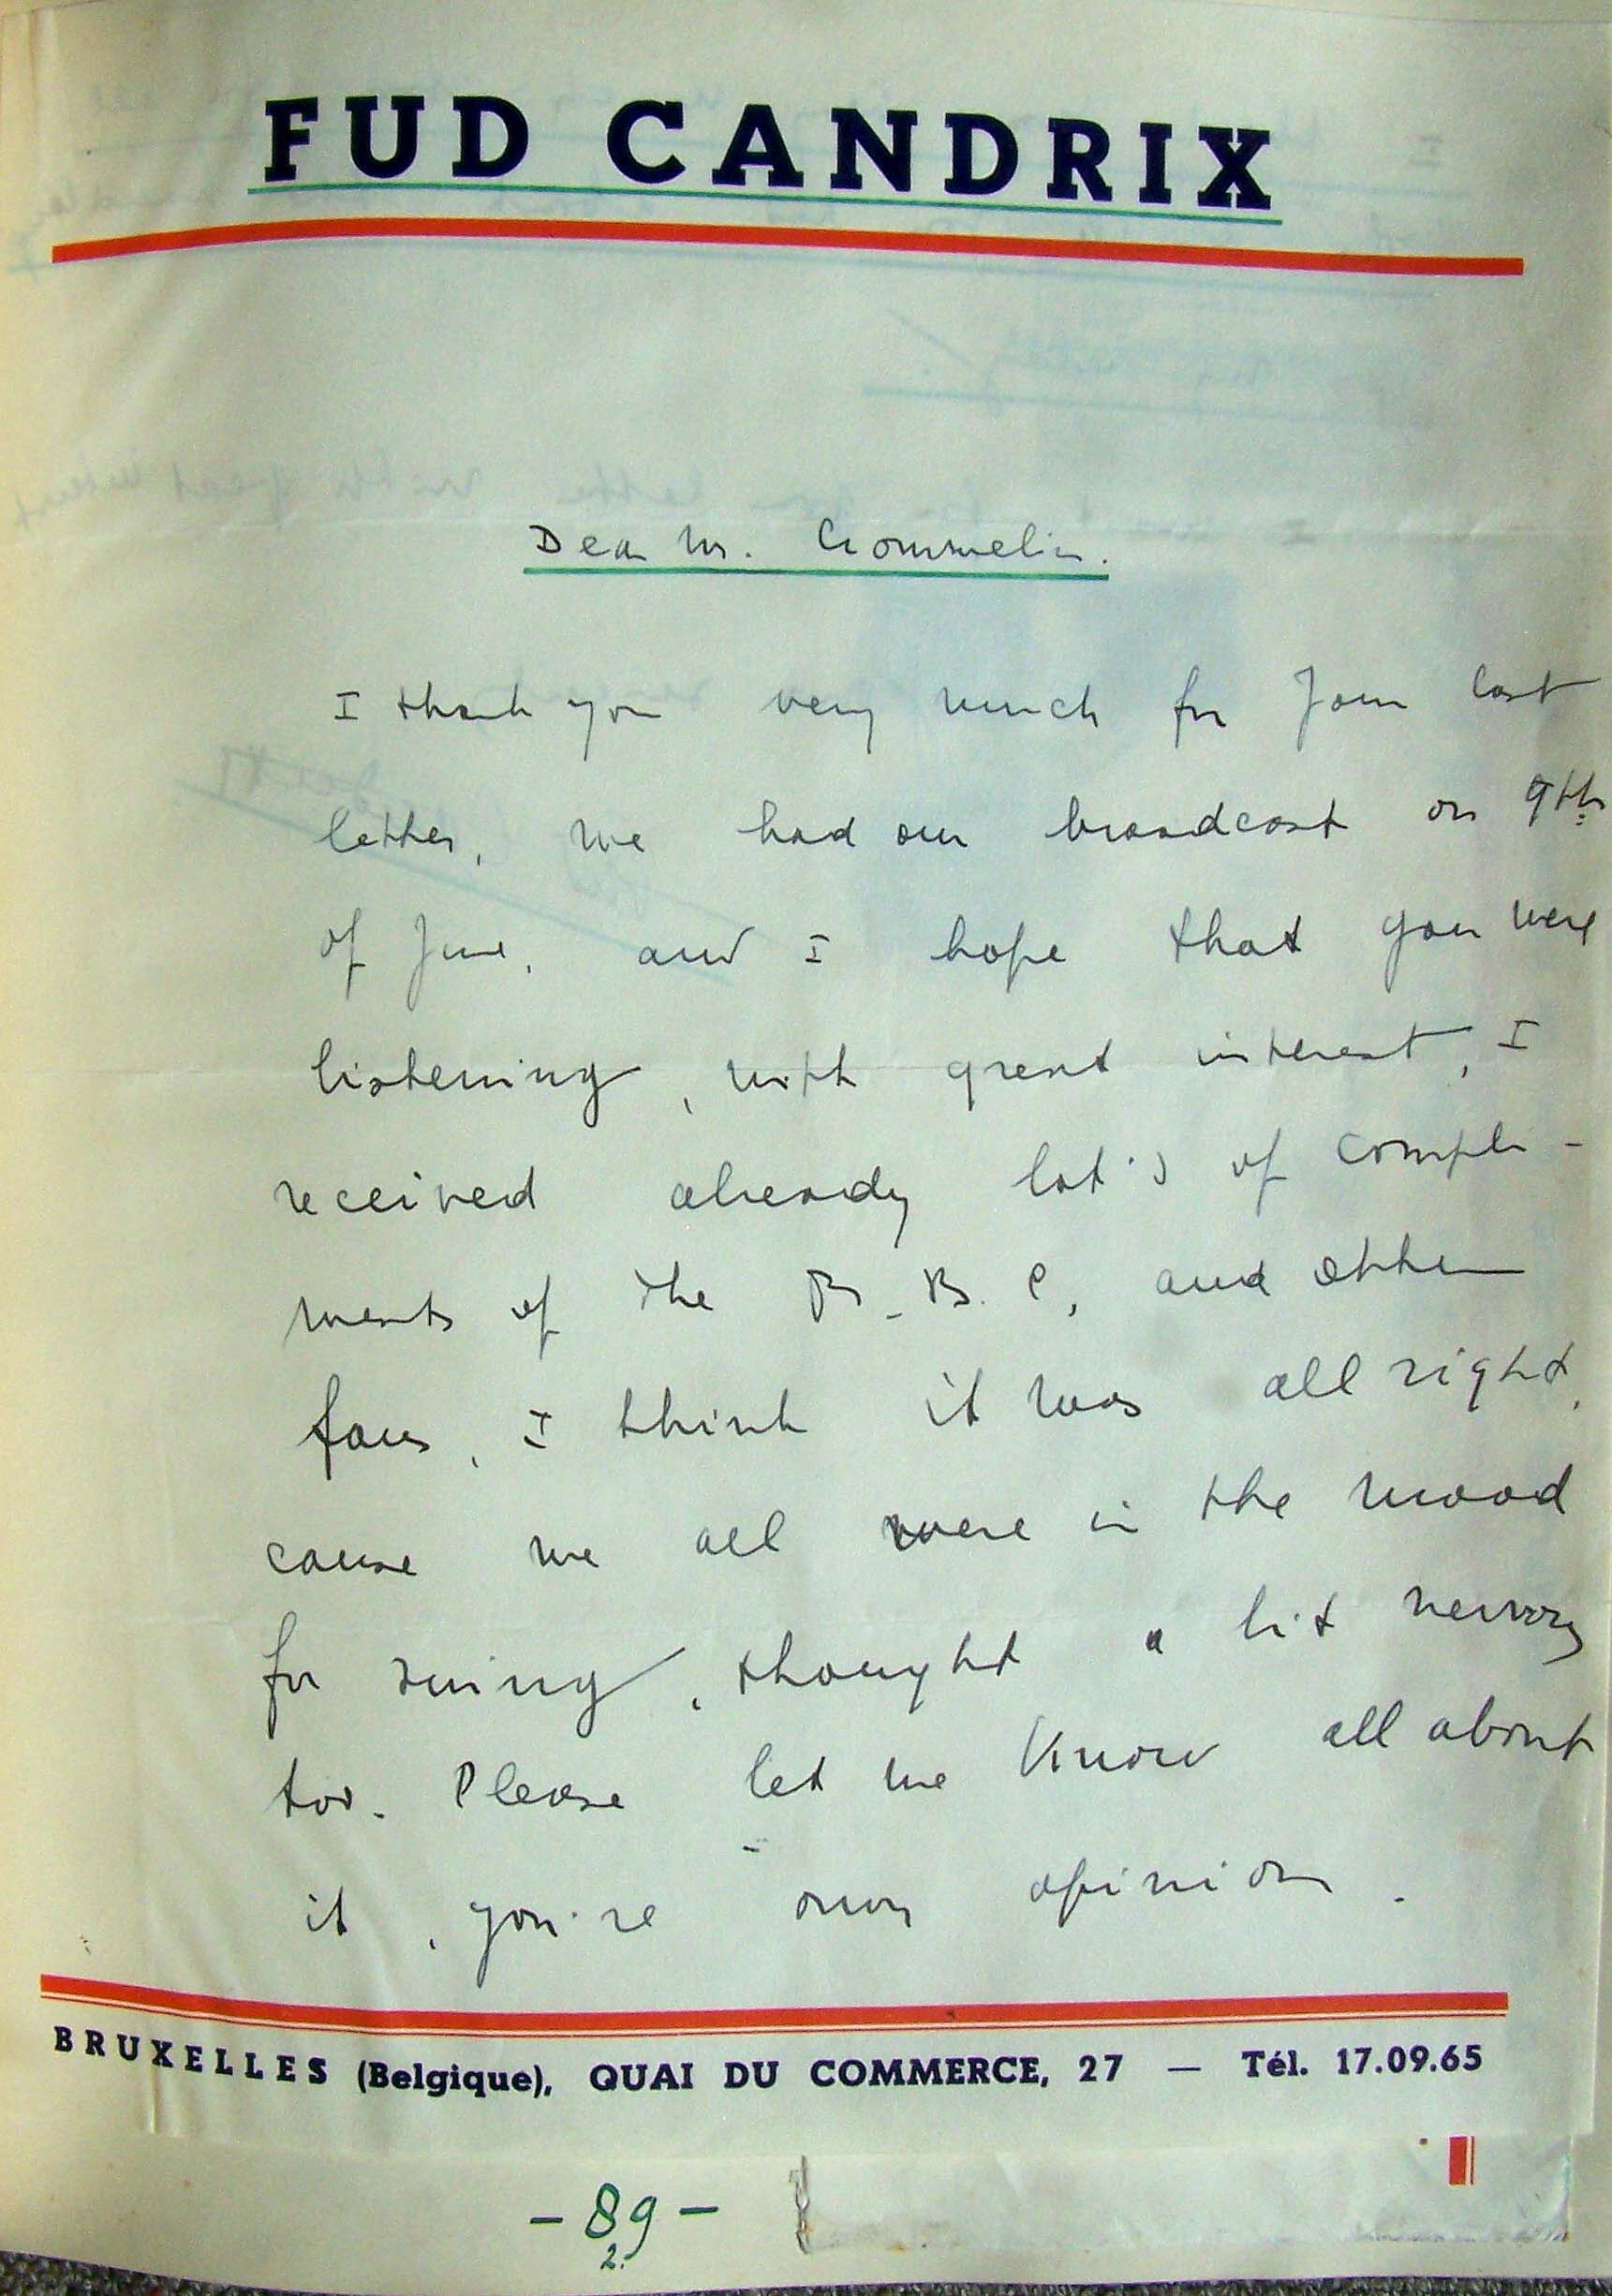 FUD CANDRIX
Dear Mr. Crommelin.
I thank you very much for your last
letter, we had our broadcast on 9th
of June, and I hope that you were
listening, with great interest, I
received already lot's of compli-
ments of the B.B.C, and other
fans, I think it was all right,
cause we all were in the mood
for swing, thought a bit nervory
too. Please let me know all about
it, you're own opinion.
BRUXELLES (Belgique), QUAI DU COMMERCE, 27 — Tél. 17.09.65
- 89 -
2.